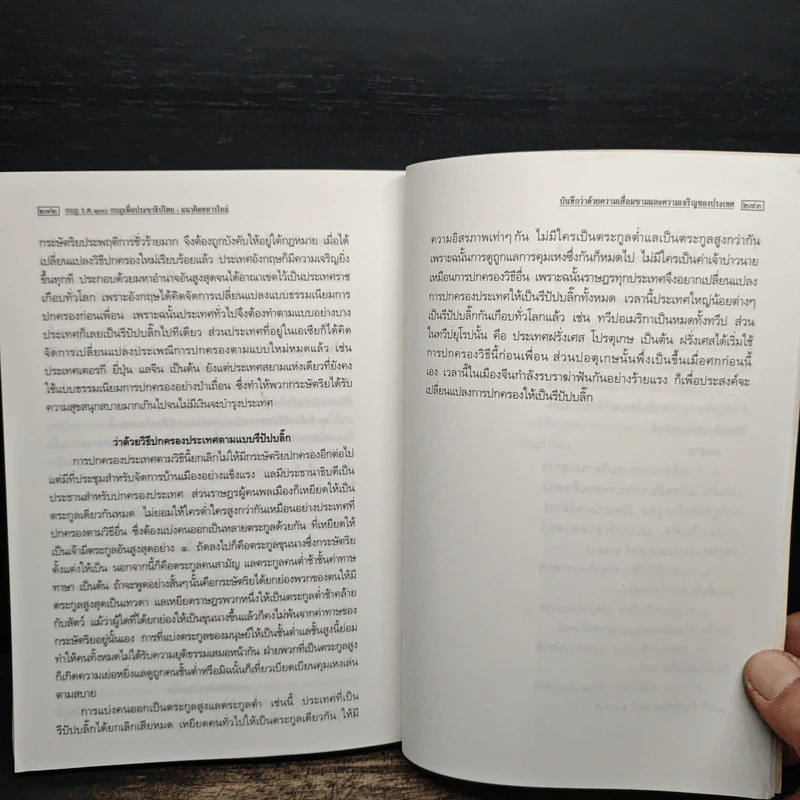 ๒๗๒ กบฏ ร.ศ.๑๓๐ กบฏเพื่อประชาธิปไตย : แนวคิดทหารใหม่
กระษัตริยประพฤติการชั่วร้ายมาก จึงต้องถูกบังคับให้อยู่ใต้กฎหมาย เมื่อได้
เปลี่ยนแปลงวิธีปกครองใหม่เรียบร้อยแล้ว ประเทศอังกฤษก็มีความเจริญยิ่ง
ขึ้นทุกที ประกอบด้วยมหาอำนาจอันสูงสุดจนได้อาณาเขตไว้เป็นประเทศราช
เกือบทั่วโลก เพราะอังกฤษได้คิดจัดการเปลี่ยนแปลงแบบธรรมเนียมการ
ปกครองก่อนเพื่อน เพราะฉนั้นประเทศทั่วไปจึงต้องทำตามแบบอย่างบาง
ประเทศก็เลยเป็นรีปัปบลิ๊กไปทีเดียว ส่วนประเทศที่อยู่ในเอเซียก็ได้คิด
จัดการเปลี่ยนแปลงประเพณีการปกครองตามแบบใหม่หมดแล้ว เช่น
ประเทศเตอรกี ยี่ปุ่น แลจีน เป็นต้น ยังแต่ประเทศสยามแห่งเดียวที่ยังคง
ใช้แบบธรรมเนียมการปกครองอย่างป่าเถื่อน ซึ่งทำให้พวกกระษัตริยได้รับ
ความสุขสนุกสบายมากเกินไปจนไม่มีเงินจะบำรุงประเทศ
ว่าด้วยวิธีปกครองประเทศตามแบบรีปัปบลิ๊ก
การปกครองประเทศตามวิธีนี้ยกเลิกไม่ให้มีกระษัตริยปกครองอีกต่อไป
แต่มีที่ประชุมสำหรับจัดการบ้านเมืองอย่างแข็งแรง แลมีประธานาธิบดีเป็น
ประธานสำหรับปกครองประเทศ ส่วนราษฎรผู้คนพลเมืองก็เหยียดให้เป็น
ตระกูลเดียวกันหมด ไม่ยอมให้ใครต่ำใครสูงกว่ากันเหมือนอย่างประเทศที่
ปกครองตามวิธีอื่น ซึ่งต้องแบ่งคนออกเป็นหลายตระกูลด้วยกัน ที่เหยียดให้
เป็นเจ้ามีตระกูลอันสูงสุดอย่าง ๑. ถัดลงไปก็คือตระกูลขุนนางซึ่งกระษัตริย
ตั้งแต่งให้เป็น นอกจากนี้ก็คือตระกูลคนสามัญ แลตระกูลคนต่ำช้าชั้นค่าทาษ
ทาษา เป็นต้น ถ้าจะพูดอย่างสั้นๆ นั้นคือกระษัตริยได้ยกย่องพวกของตนให้มี
ตระกูลสูงสุดเป็นเทวดา แลเหยียดราษฎรพวกหนึ่งให้เป็นตระกูลต่ำช้าคล้าย
กับสัตว์ แม้ว่าผู้ใดที่ได้ยกย่องให้เป็นขุนนางขึ้นแล้วก็คงไม่พ้นจากค่าทาษของ
กระษัตริยอยู่นั้นเอง การที่แบ่งตระกูลของมนุษย์ให้เป็นชั้นต่ำแลชั้นสูงนี้ย่อม
ทำให้คนทั้งหมดไม่ได้รับความยุติธรรมเสมอหน้ากัน ฝ่ายพวกที่เป็นตระกูลสูง
ก็เกิดความเย่อหยิ่งแลดูถูกคนชั้นต่ำหรือมิฉนั้นก็เที่ยวเบียดเบียนคุมเหงเล่น
ตามสบาย
การแบ่งคนออกเป็นตระกูลสูงแลตระกูลต่ำ เช่นนี้ ประเทศที่เป็น
รีปัปบลิ๊กได้ยกเลิกเสียหมด เหยียดคนทั่วไปให้เป็นตระกูลเดียวกัน ให้มี
บันทึกว่าด้วยความเสื่อมซามและความเจริญของประเทศ ๒๗๓
ความอิสรภาพเท่าๆ กัน ไม่มีใครเป็นตระกูลต่ำแลเป็นตระกูลสูงกว่ากัน
เพราะฉนั้นการดูถูกแลการคุมเหงซึ่งกันก็หมดไป ไม่มีใครเป็นค่าเจ้าบ่าวนาย
เหมือนการปกครองวิธีอื่น เพราะฉนั้นราษฎรทุกประเทศจึงอยากเปลี่ยนแปลง
การปกครองประเทศให้เป็นรีปัปบลิ๊กทั้งหมด เวลานี้ประเทศใหญ่น้อยต่างๆ
ก็เป็นรีปัปบลิ๊กกันเกือบทั่วโลกแล้ว เช่น ทวีปอเมริกาเป็นหมดทั้งทวีป ส่วน
ในทวีปยุโรปนั้น คือ ประเทศฝรั่งเศส โปรตุเกษ เป็นต้น ฝรั่งเศสได้เริ่มใช้
การปกครองวิธีนี้ก่อนเพื่อน ส่วนปอตุเกษนั้นพึ่งขึ้นเป็นเมื่อศกก่อนนี้
เอง เวลานี้ในเมืองจีนกำลังรบราฆ่าฟันกันอย่างร้ายแรง ก็เพื่อประสงค์จะ
เปลี่ยนแปลงการปกครองให้เป็นรีปัปบลิ๊ก